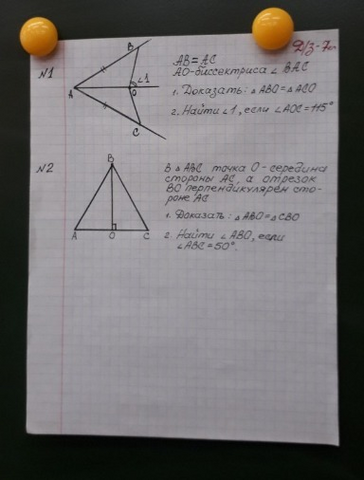 Д/з-7кл
N1
B
A
∠1
O
C
AB=AC
AO-биссектриса ∠BAC
1. Доказать: △ABO=△ACO
2. Найти ∠1, если ∠AOC=115°
N2
B
A O C
В △ABC точка O-середина
стороны AC, а отрезок
BO перпендикулярен сто-
роне AC
1. Доказать: △ABO=△CBO
2. Найти ∠ABO, если
∠ABC=50°.